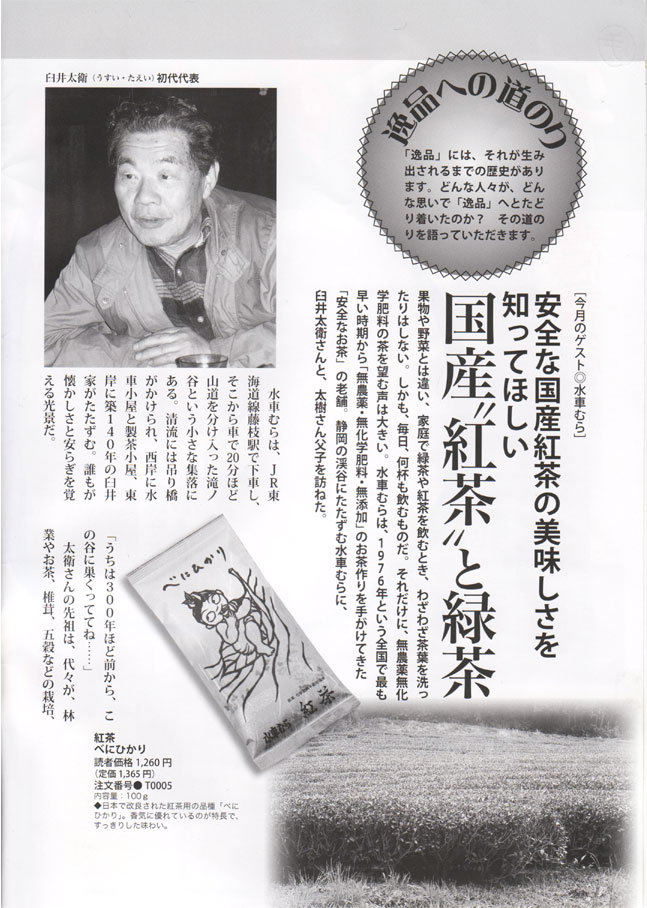 臼井太衛（うすい・たえい）初代代表
逸品への道のり
「逸品」には、それが生み
出されるまでの歴史があり
ます。どんな人々が、どん
な思いで「逸品」へとたど
り着いたのか？　その道の
りを語っていただきます。
［今月のゲスト◎水車むら］
安全な国産紅茶の美味しさを
知ってほしい
国産〝紅茶〟と緑茶
果物や野菜とは違い、家庭で緑茶や紅茶を飲むとき、わざわざ茶葉を洗っ
たりはしない。しかも、毎日、何杯も飲むものだ。それだけに、無農薬無化
学肥料の茶を望む声は大きい。水車むらは、1976年という全国で最も
早い時期から「無農薬・無化学肥料・無添加」のお茶作りを手がけてきた
「安全なお茶」の老舗。静岡の渓谷にたたずむ水車むらに、
臼井太衛さんと、太樹さん父子を訪ねた。
水車むらは、ＪＲ東
海道線藤枝駅で下車し、
そこから車で20分ほど
山道を分け入った滝ノ
谷という小さな集落に
ある。清流には吊り橋
がかけられ、西岸に水
車小屋と製茶小屋、東
岸に築１４０年の臼井
家がたたずむ。誰もが
懐かしさと安らぎを覚
える光景だ。
「うちは３００年ほど前から、こ
の谷に巣くっててね……」
太衛さんの先祖は、代々が、林
業やお茶、椎茸、五穀などの栽培、
べにひかり
水車むら 紅茶
紅茶
べにひかり
読者価格 1,260 円
（定価 1,365 円）
注文番号● T0005
内容量：100ｇ
◆日本で改良された紅茶用の品種「べに
ひかり」。香気に優れているのが特長で、
すっきりした味わい。